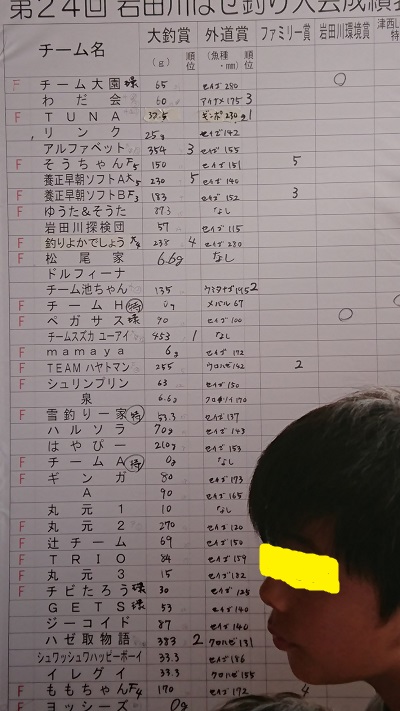 第24回 岩田川はぜ釣り大会成績表
チーム名 大釣賞 (g) 順位 外道賞 (魚種・mm) 順位 ファミリー賞 岩田川環境賞 津西L
F チーム大園 環 65 セイゴ 280 ○
わだ会 60 アイナメ 175 3
F TUNA 37.5 ギンポ 230 1
リンク 25g セイゴ 142
アルファベット 354 3 セイゴ 155
F そうちゃん F5 150 セイゴ 151 5
養正早朝ソフトA 大5 230 5 セイゴ 140
F 養正早朝ソフトB F3 183 セイゴ 152 3
F ゆうた&そうた 873 なし
岩田川探検団 57 セイゴ 115
F 釣りよかでしょう 大4 238 4 セイゴ 280
F 松尾家 6.6g なし
ドルフィーナ
チーム池ちゃん 135 195 2
F チームH 特 0g メバル 67
F ペガサス 環 90 セイゴ 100 ○
チームスズカ ユーアイ 453 1 なし
F mamaya 6g セイゴ 172
F TEAMハヤトマン 255 ウロハゼ 142 2
F シュリンプリン 63 セイゴ 150
泉 6.6g 170
F 雪釣り一家 特 53.3 セイゴ 137
ハルソラ 70g セイゴ 143
はやぴー 210g セイゴ 153
F チームA 特 0g なし
F ギンガ 80 セイゴ 173
A 90 セイゴ 165
丸元1 10 なし
F 丸元2 270 セイゴ 120
F 辻チーム 69 セイゴ 150
F TRIO 84 セイゴ 159
F 丸元3 15 セイゴ 132
F チビたろう 環 30 セイゴ 125
GETS 環 53 セイゴ 140
ジーコイド 87 セイゴ 140
ハゼ取物語 383 2 クロハゼ 131
シュワッシュワハッピーボーイ 33.3 セイゴ 186
イレグイ 33.3 クロハゼ 155
F ももちゃん F4 170 セイゴ 172 4
F ヨッシーズ 0g